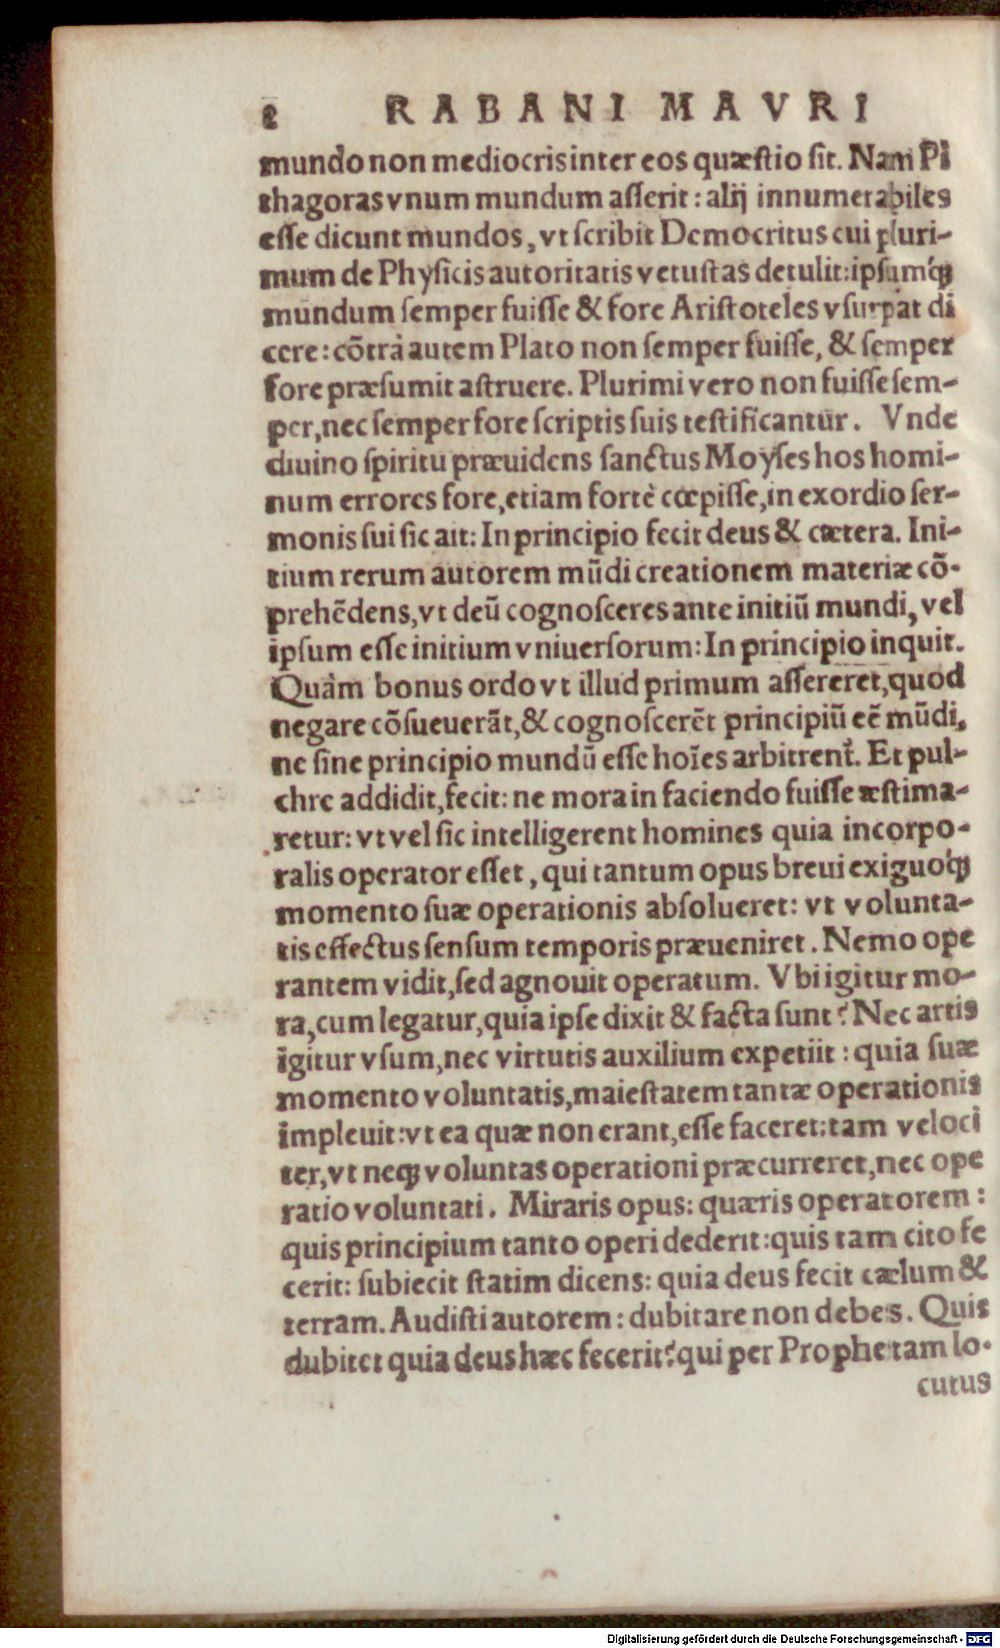 2 RABANI MAVRI
mundo non mediocris inter eos quæſtio ſit. Nam Pi
thagoras vnum mundum aſſerit: alij innumerabiles
eſſe dicunt mundos, vt ſcribit Democritus cui pluri-
mum de Phyſicis autoritatis vetuſtas detulit: ipſumq́ꝫ
mundum ſemper fuiſſe & fore Ariſtoteles vſurpat di
cere: cõtrà autem Plato non ſemper fuiſſe, & ſemper
fore præſumit aſtruere. Plurimi vero non fuiſſe ſem-
per, nec ſemper fore ſcriptis ſuis teſtificantur. Vnde
diuino ſpiritu præuidens ſanctus Moyſes hos homi-
num errores fore, etiam fortè cœpiſſe, in exordio ſer-
monis ſui ſic ait: In principio fecit deus & cætera. Ini-
tium rerum autorem mũdi creationem materiæ cõ-
prehẽdens, vt deũ cognoſceres ante initiũ mundi, vel
ipſum eſſe initium vniuerſorum: In principio inquit.
Quàm bonus ordo vt illud primum aſſereret, quod
negare cõſueuerãt, & cognoſcerẽt principiũ eẽ mũdi,
ne ſine principio mundũ eſſe hoĩes arbitrent᷑. Et pul-
chre addidit, fecit: ne mora in faciendo fuiſſe æſtima-
retur: vt vel ſic intelligerent homines quia incorpo-
ralis operator eſſet, qui tantum opus breui exiguoq́ꝫ
momento ſuæ operationis abſolueret: vt volunta-
tis effectus ſenſum temporis præueniret. Nemo ope
rantem vidit, ſed agnouit operatum. Vbi igitur mo-
ra, cum legatur, quia ipſe dixit & facta ſunt? Nec artis
igitur vſum, nec virtutis auxilium expetiit: quia ſuæ
momento voluntatis, maieſtatem tantæ operationis
impleuit: vt ea quæ non erant, eſſe faceret: tam veloci
ter, vt neqꝫ voluntas operationi præcurreret, nec ope
ratio voluntati. Miraris opus: quæris operatorem:
quis principium tanto operi dederit: quis tam cito fe
cerit: ſubiecit ſtatim dicens: quia deus fecit cælum &
terram. Audiſti autorem: dubitare non debes. Quis
dubitet quia deus hæc fecerit? qui per Prophetam lo-
cutus
Digitalisierung gefördert durch die Deutsche Forschungsgemeinschaft - DFG